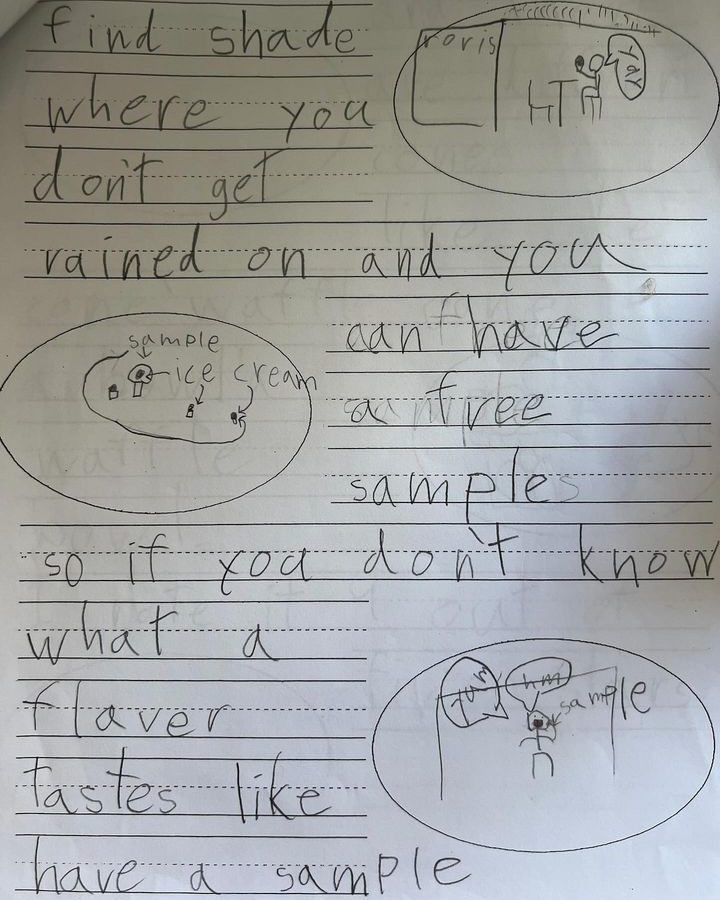 find shade
roris
YAY
where you
don't get
rained on and you
can have
sample
ice cream
a free
sample
so if you don't know
what a
yum
hm
sample
flaver
tastes like
have a sample